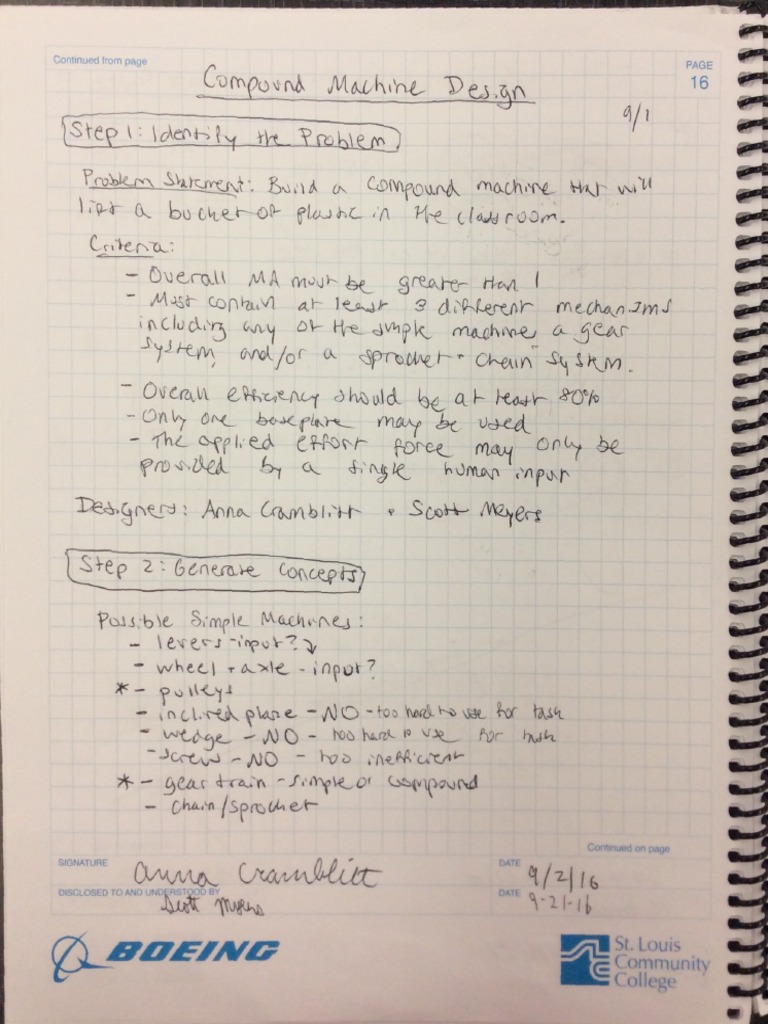 Continued from page
PAGE
16
Compound Machine Design
9/1
Step 1: Identify the Problem
Problem Statement: Build a compound machine that will
lift a bucket of plastic in the classroom.
Criteria:
- Overall MA must be greater than 1
- Must contain at least 3 different mechanisms
including any of the simple machines, a gear
system, and/or a sprocket + chain system.
- Overall efficiency should be at least 80%
- Only one baseplate may be used
- The applied effort force may only be
provided by a single human input
Designers: Anna Cramblitt + Scott Meyers
Step 2: Generate Concepts
Possible Simple Machines:
- levers - input? ↘
- wheel + axle - input?
* - pulleys
- inclined plane - NO - too hard to use for task
- wedge - NO - too hard to use for task
- screw - NO - too inefficient
* - gear train - simple or compound
- chain/sprocket
Continued on page
SIGNATURE
Anna Cramblitt
DATE
9/2/16
DISCLOSED TO AND UNDERSTOOD BY
Scott Myers
DATE
9-21-16
BOEING
St. Louis
Community
College